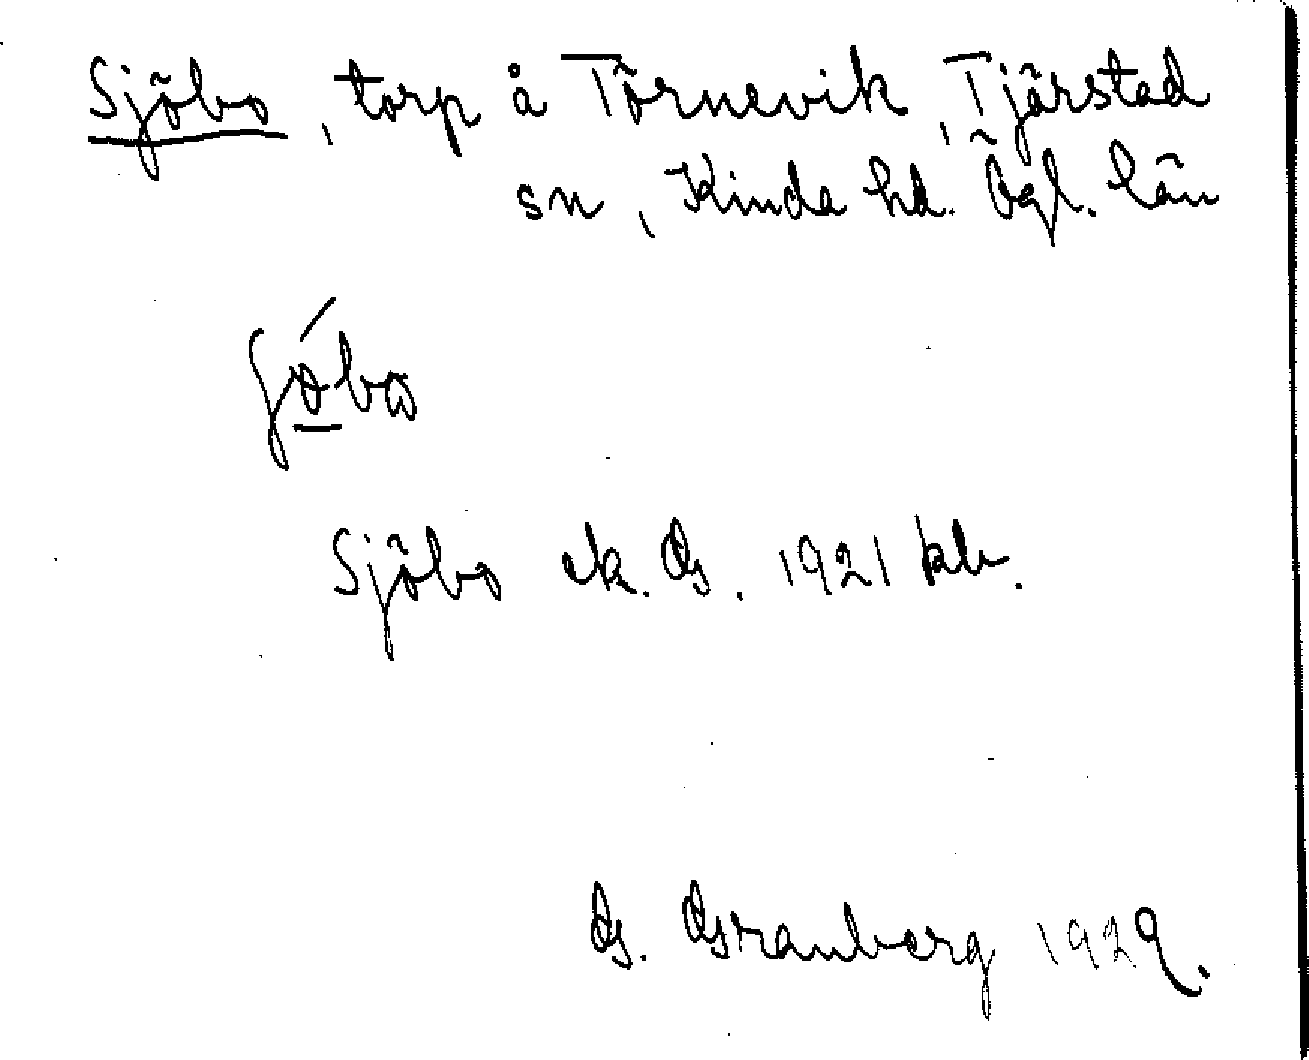 Sjöbo, torp å Törnevik, Tjärstad
sn, Kinda hd. Ögl. län
Sjöbo ek. G. 1921 kb.
G. Granberg 1929.